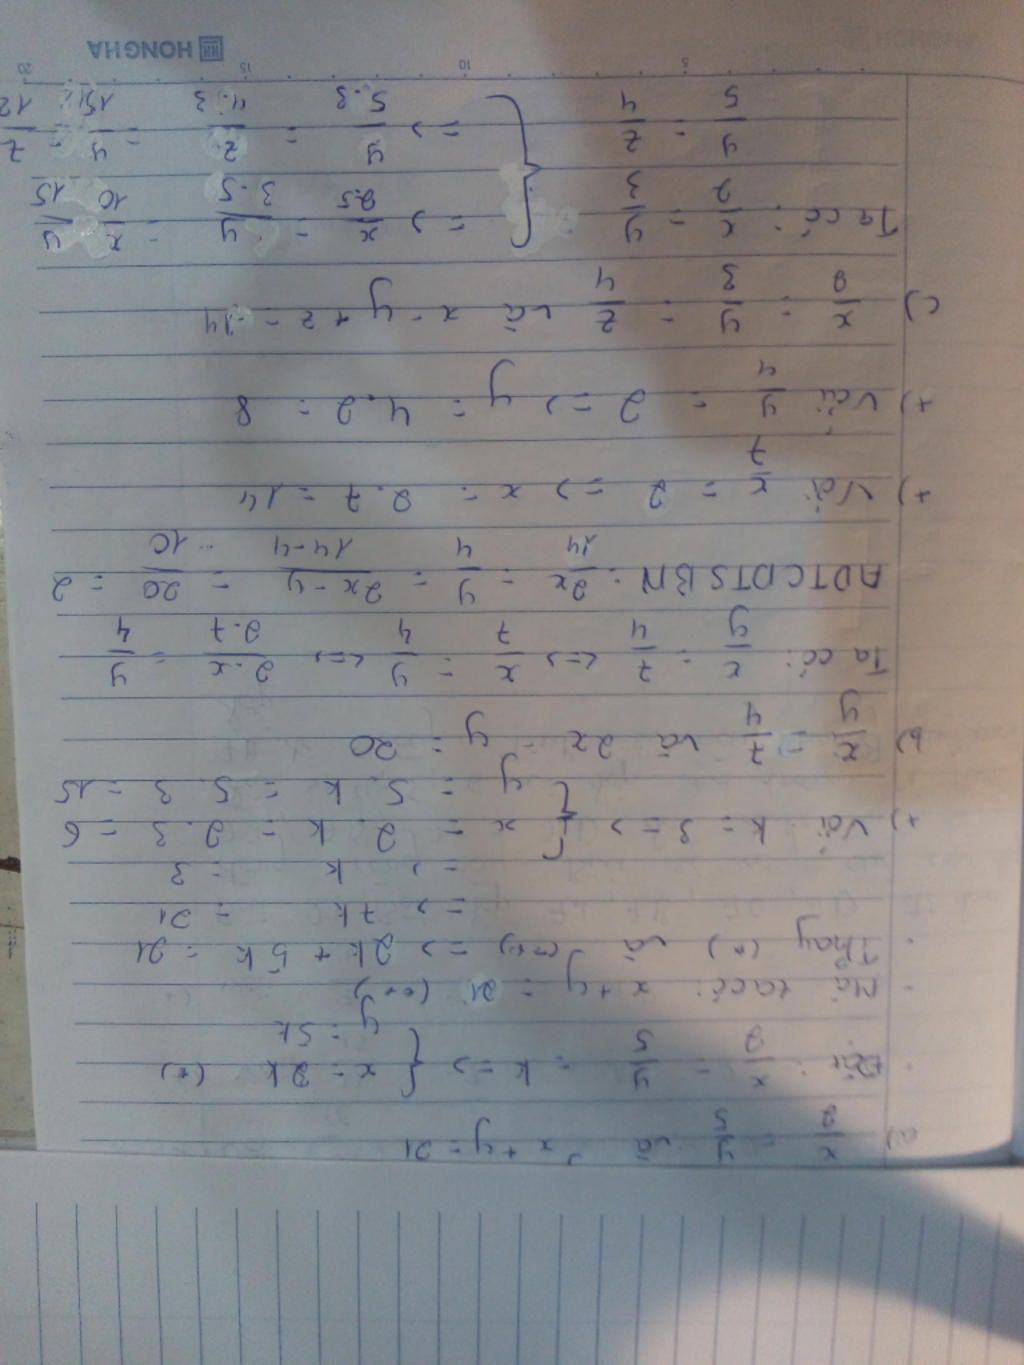 a) x/2 = y/5 và x + y = 21
Đặt: x/2 = y/5 = k => { x = 2k (*)
y = 5k
- Mà ta có: x + y = 21 (**)
Thay (*) và (**) => 2k + 5k = 21
=> 7k = 21
=> k = 3
+) Với k = 3 => { x = 2.k = 2.3 = 6
y = 5.k = 5.3 = 15
b) x/y = 7/4 và 2x - y = 20
Ta có: x/y = 7/4 <=> x/7 = y/4 <=> 2.x/2.7 = y/4
ADTCDTSBN: 2x/14 = y/4 = 2x-y/14-4 = 20/10 = 2
+) Với x/7 = 2 => x = 2.7 = 14
+) Với y/4 = 2 => y = 4.2 = 8
c) x/2 = y/3 = z/4 và x - y + z = -14
Ta có: x/2 = y/3 } => x/2.5 = y/3.5 = x/10 = y/15
y/5 = z/4 => y/5.3 = z/4.3 = y/15 = z/12
5 10 15 20
HONGHA